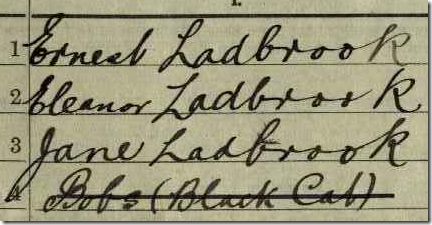 1 Ernest Ladbrook
2 Eleanor Ladbrook
3 Jane Ladbrook
4 Bobs (Black Cat)